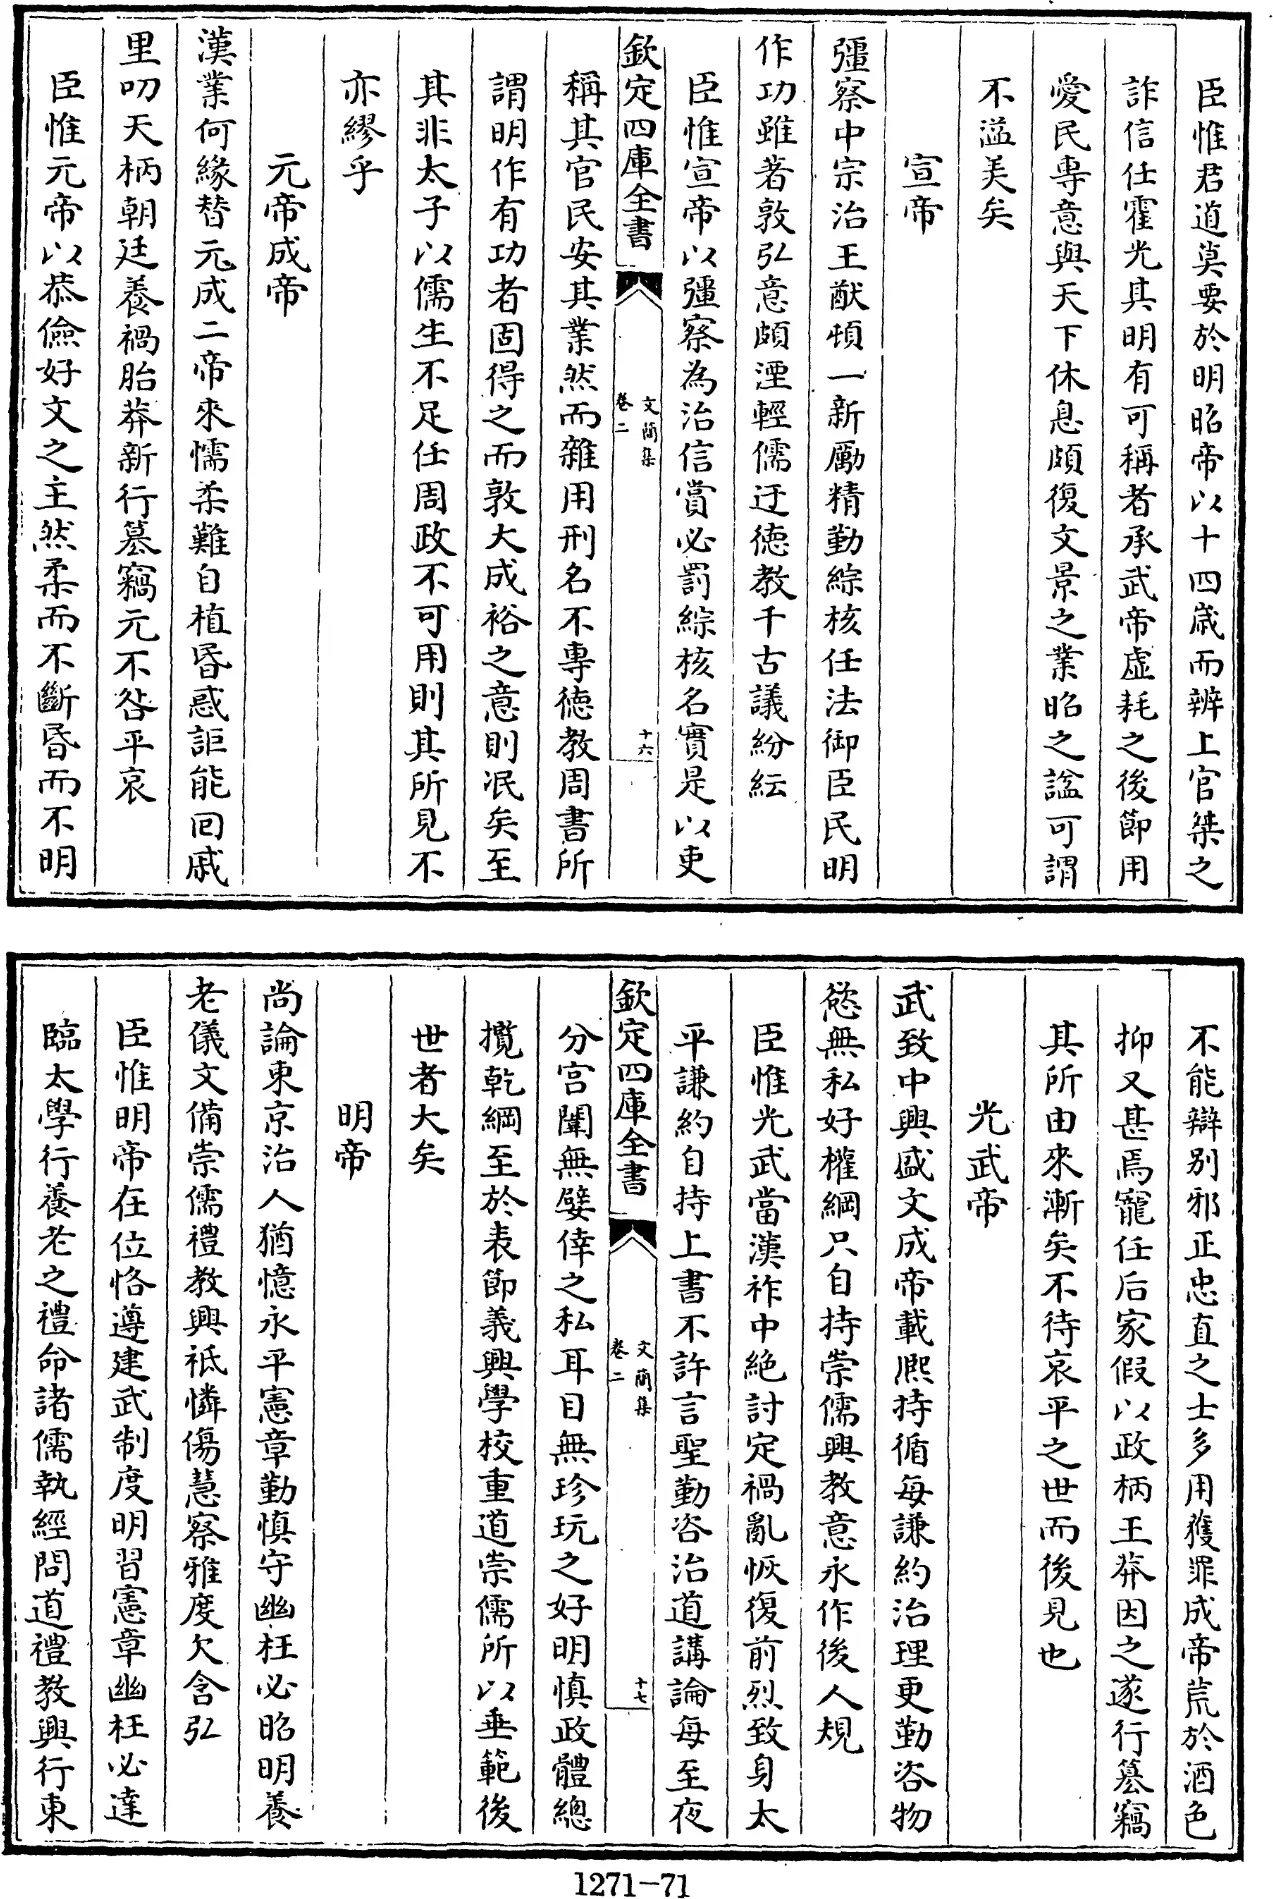 臣惟君道莫要於明昭帝以十四歲而辨上官桀之
詐信任霍光其明有可稱者承武帝虛耗之後節用
愛民專意與天下休息頗復文景之業昭之諡可謂
不溢美矣
宣帝
彊察中宗治王猷頓一新勵精勤綜核任法御臣民明
作功雖著敦弘意頗湮輕儒迂德教千古議紛紜
臣惟宣帝以彊察為治信賞必罰綜核名實是以吏
欽定四庫全書
文簡集
卷二
十六
稱其官民安其業然而雜用刑名不專德教周書所
謂明作有功者固得之而敦大成裕之意則泯矣至
其非太子以儒生不足任周政不可用則其所見不
亦繆乎
元帝成帝
漢業何緣替元成二帝來懦柔難自植昏惑詎能回戚
里叨天柄朝廷養禍胎莽新行簒竊元不咎平哀
臣惟元帝以恭儉好文之主然柔而不斷昏而不明
不能辯別邪正忠直之士多用獲罪成帝荒於酒色
抑又甚焉寵任后家假以政柄王莽因之遂行簒竊
其所由來漸矣不待哀平之世而後見也
光武帝
武致中興盛文成帝載熙持循每謙約治理更勤咨物
慾無私好權綱只自持崇儒興教意永作後人規
臣惟光武當漢祚中絶討定禍亂恢復前烈致身太
平謙約自持上書不許言聖勤咨治道講論每至夜
欽定四庫全書
文簡集
卷二
十七
分宫闈無嬖倖之私耳目無珍玩之好明慎政體總
攬乾綱至於表節義興學校重道崇儒所以垂範後
世者大矣
明帝
尚論東京治人猶憶永平憲章勤慎守幽枉必昭明養
老儀文備崇儒禮教興祗憐傷慧察雅度欠含弘
臣惟明帝在位恪遵建武制度明習憲章幽枉必達
臨太學行養老之禮命諸儒執經問道禮教興行東
1271-71